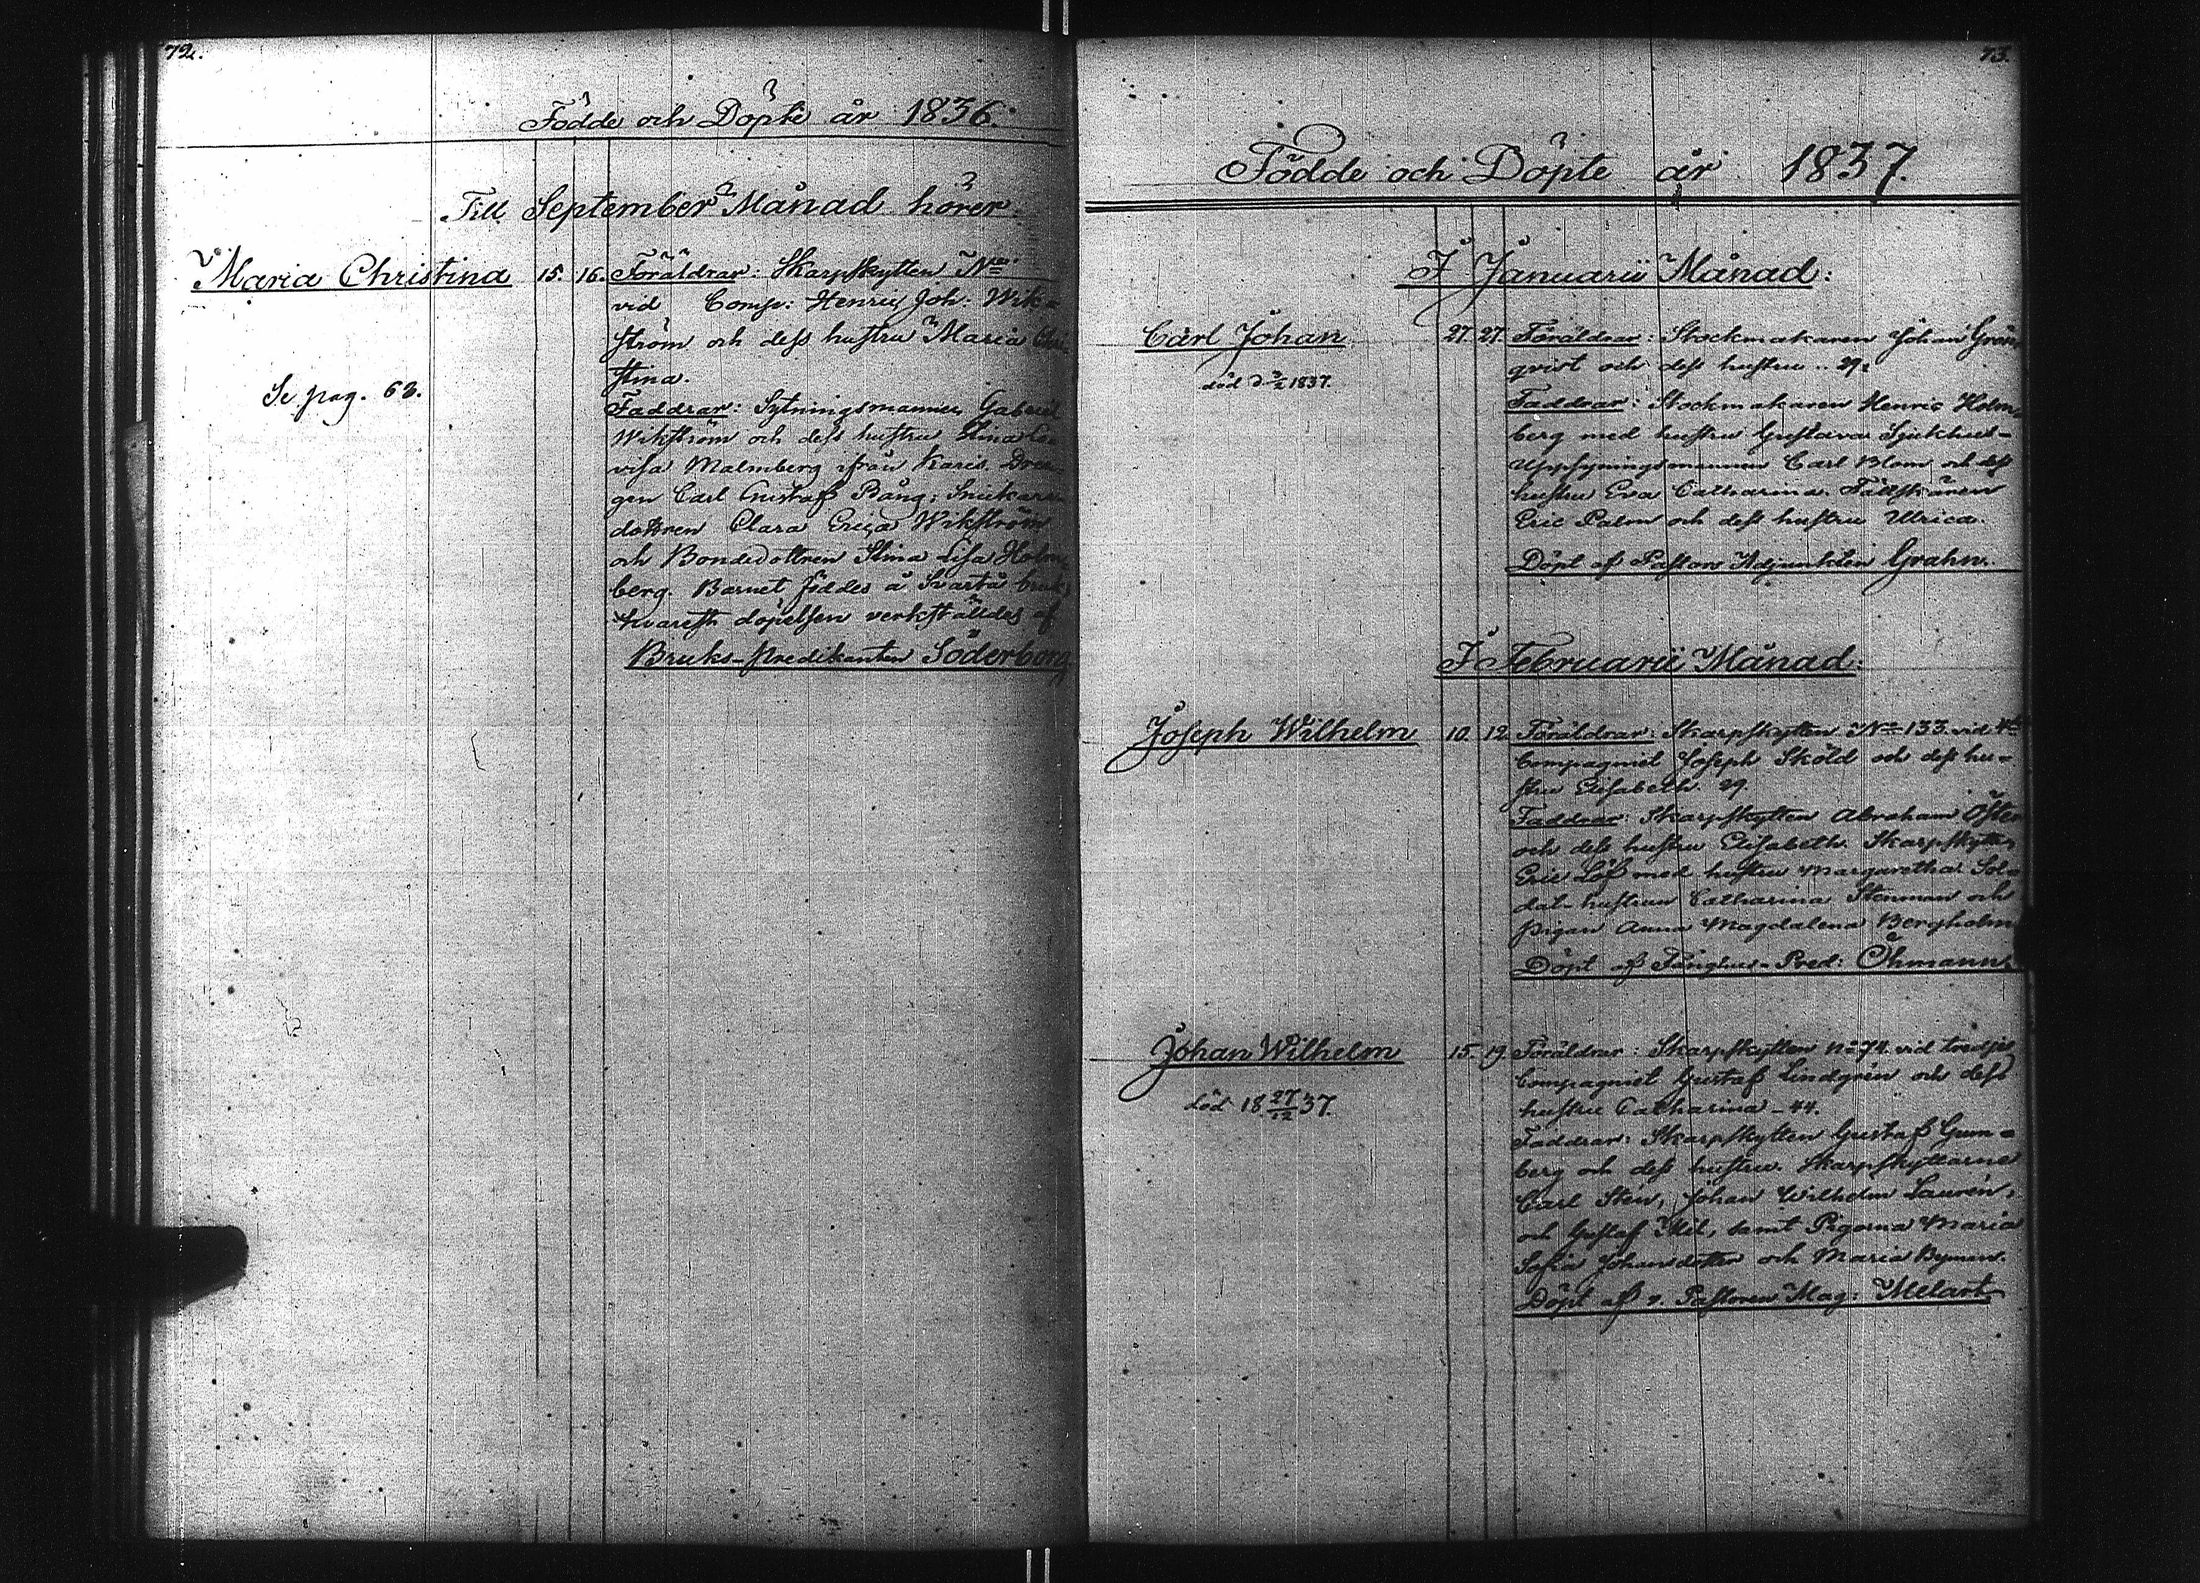 72.
Födde och Döpte år 1836.
Till September Månad hörer:
Maria Christina 15. 16. Föräldrar: Skarpskytten Nro
vid Comp: Henric Joh: Wik=
ström och dess hustru Maria Chri-
stina.
Se pag. 63.
Faddrar: Sytningsmannen Gabriel
Wikström och dess hustru Stina Lo-
visa Malmberg ifrån Karis. Dren-
gen Carl Gustaf Bång: Snickare
dottren Clara Erica Wikström
och Bondedottren Stina Lisa Holm
berg. Barnet föddes å Svartå bruk,
hvarest döpelsen verkställdes af
Bruks-predikanten Söderborg
73.
Födde och Döpte år 1837.
I Januarii Månad:
Carl Johan 27. 27. Föräldrar: Stockmakaren Johan Grön
qvist och dess hustru .. 29.
död d. 3/2 1837.
Faddrar: Stockmakaren Henric Holm-
berg med hustru Gustava Sjukhus-
Uppsyningsmannen Carl Blom och dess
hustru Eva Catharina. Fältskären
Eric Palm och dess hustru Ulrica.
Döpt af Pastors Adjunkten Grahn.
I Februarii Månad:
Joseph Wilhelm 10. 12. Föräldrar: Skarpskytten No 133. vid 4de
Compagniet Joseph Sköld och dess hu-
stru Elisabeth. 29.
Faddrar: Skarpskytten Abraham Öster
och dess hustru Elisabeth. Skarpskytten
Eric Löf med hustru Margaretha. Sol-
dat-hustrun Catharina Stenman och
pigan Anna Magdalena Bergholm
Döpt af Fänghus-Pred: Öhmann.
Johan Wilhelm 15. 19. Föräldrar: Skarpskytten No 74. vid tredje
Compagniet Gustaf Lindgren och dess
hustru Catharina - 44.
död 18 27/12 37.
Faddrar: Skarpskytten Gustaf Gum=
berg och dess hustru. Skarpskyttarne
Carl Sten, Johan Wilhelm Laurén,
och Gustaf Mil, samt Pigorna Maria
Sofia Johansdotter och Maria Byman.
Döpt af v. Pastoren Mag: Melart